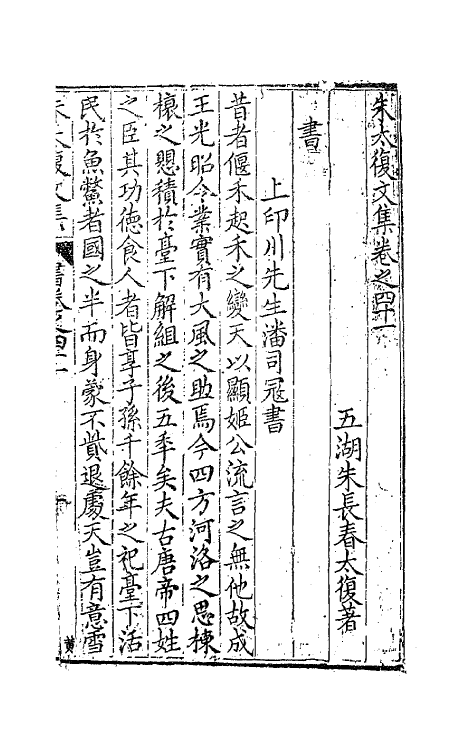 朱太復文集卷之四十一
五湖朱長春太復著
書
上印川先生潘司寇書
昔者偃禾起禾之變天以顯姬公流言之無他故成
王光昭令業實有大風之助焉今四方河洛之思棟
榱之懇積於臺下解組之後五季矣夫古唐帝四姓
之臣其功德食人者皆享子孫千餘年之祀臺下活
民於魚鱉者國之半而身蒙不貲退處天豈有意雪
朱太復文集
書卷之四十一
黄